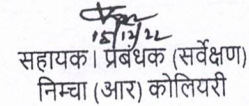 15/12/22
सहायक। प्रबंधक (सर्वेक्षण)
निम्चा (आर) कोलियरी